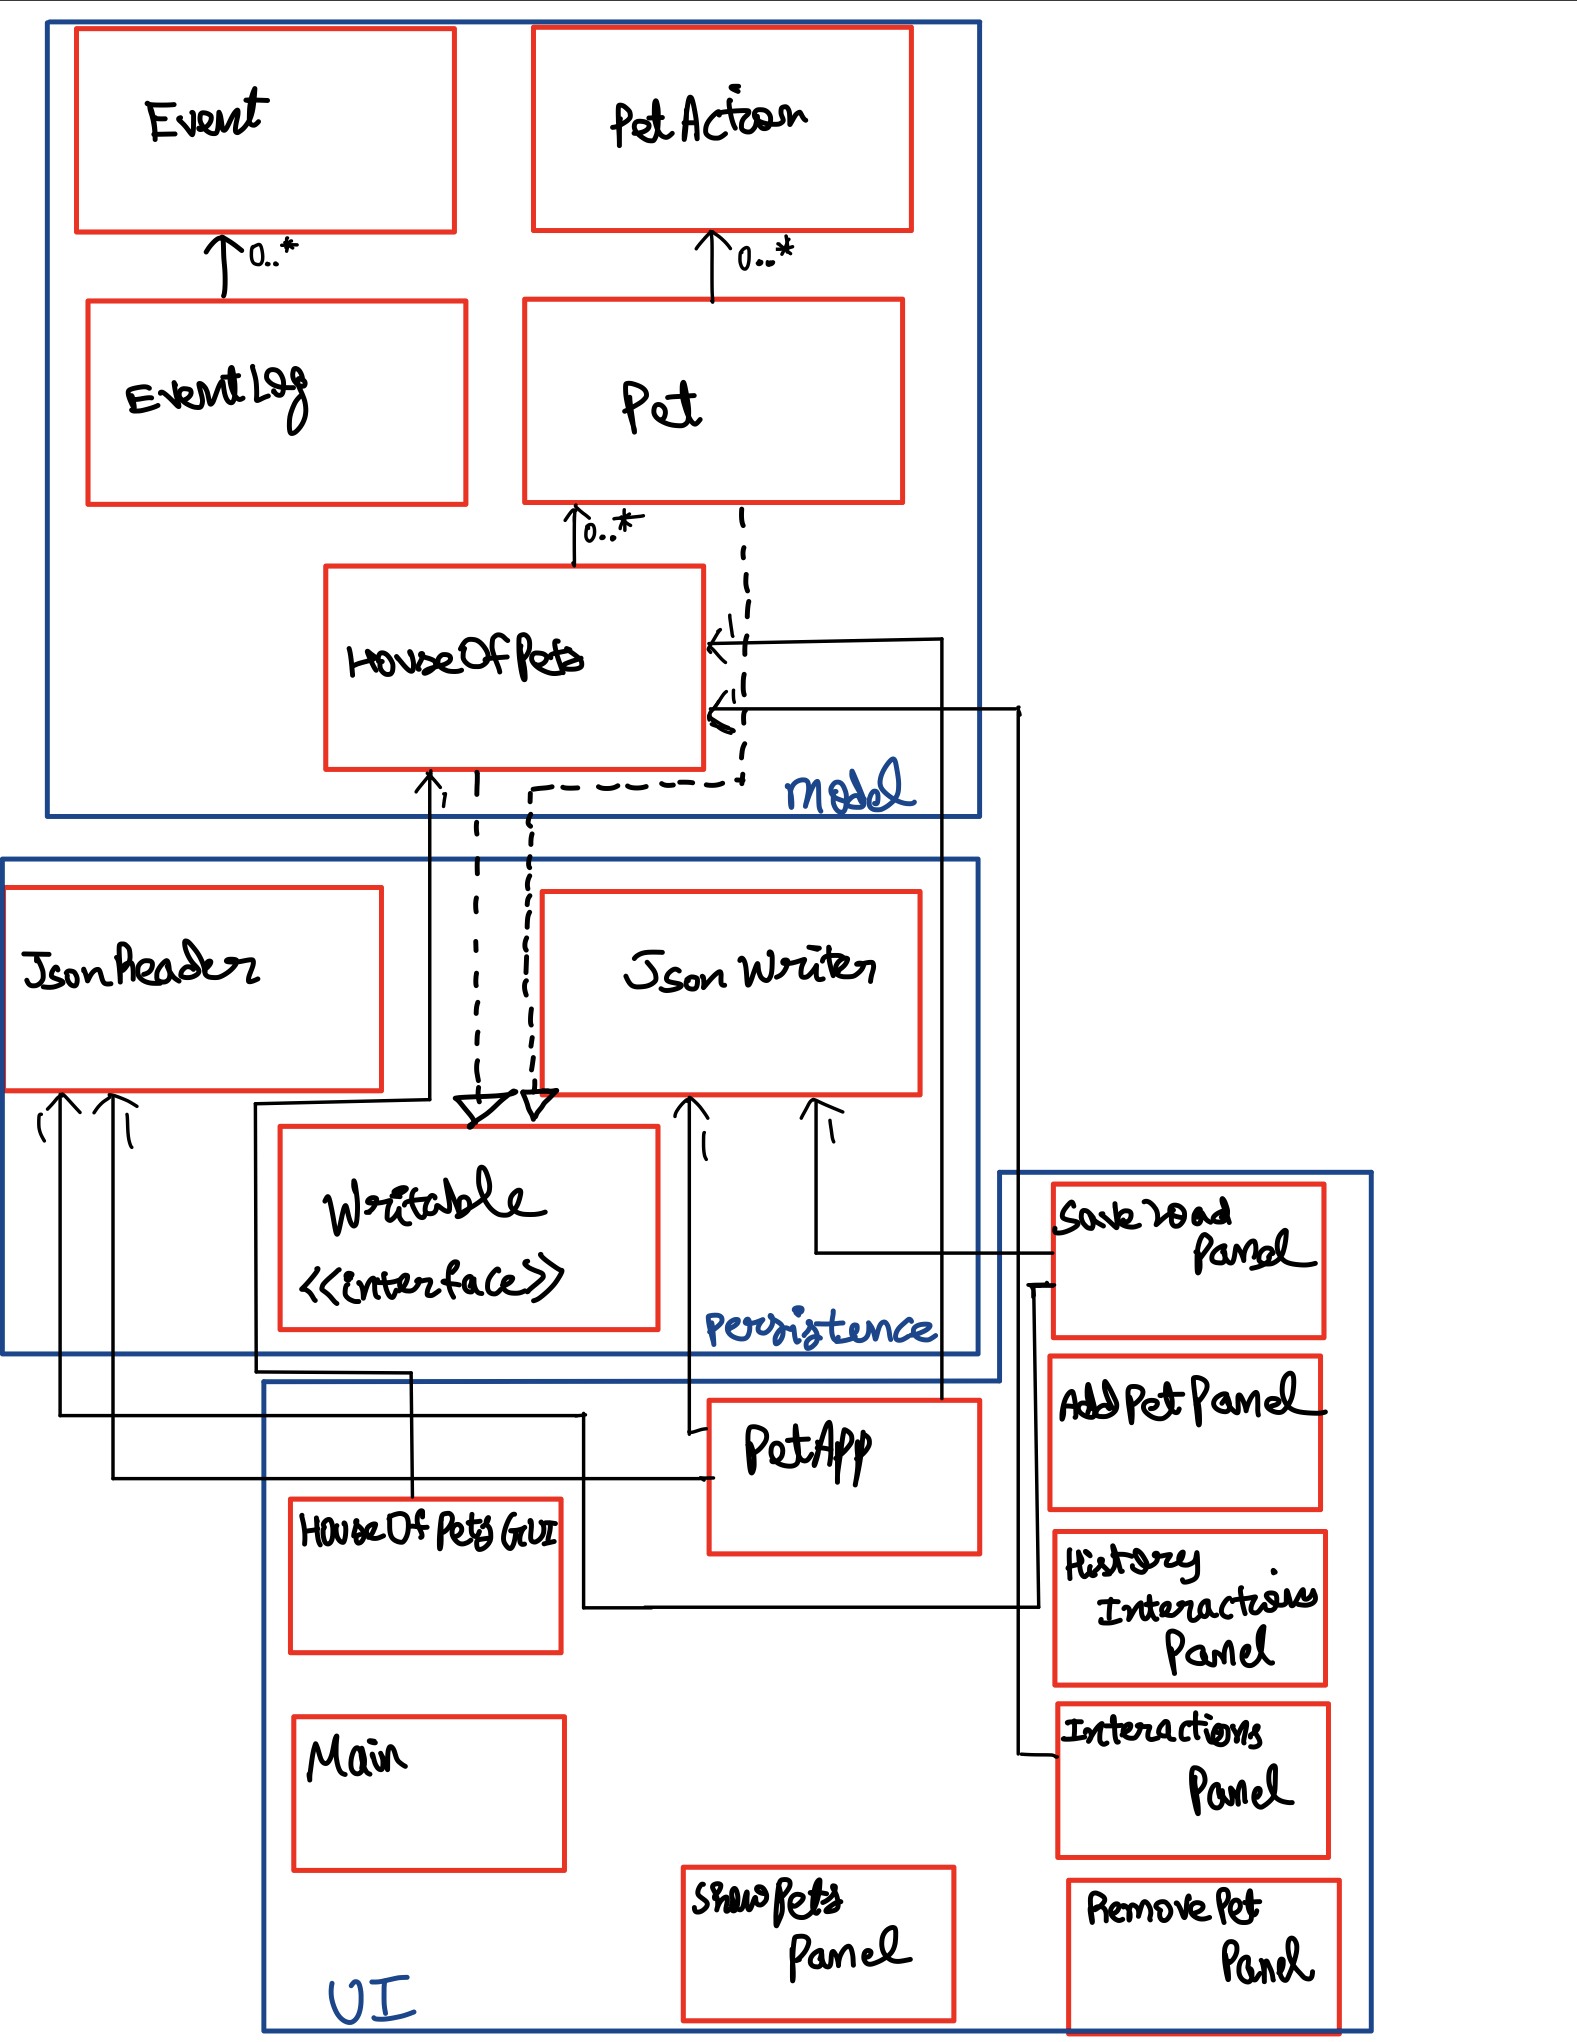 Event
PetAction
0..*
0..*
EventLog
Pet
0..*
HouseOfPets
1
1
1
Model
JsonReader
JsonWriter
1
1
1
1
Writable
<<interface>>
Persistence
SaveLoad
Panel
AddPetPanel
PetApp
HouseOfPetsGUI
History
Interactions
Panel
Main
Interactions
Panel
ShowPets
Panel
RemovePet
Panel
UI